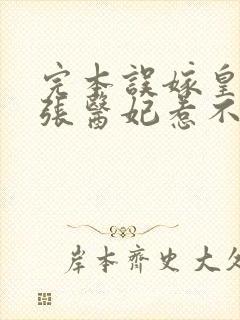 完本誤嫁皇
張醫妃惹不
岸本齊史大久